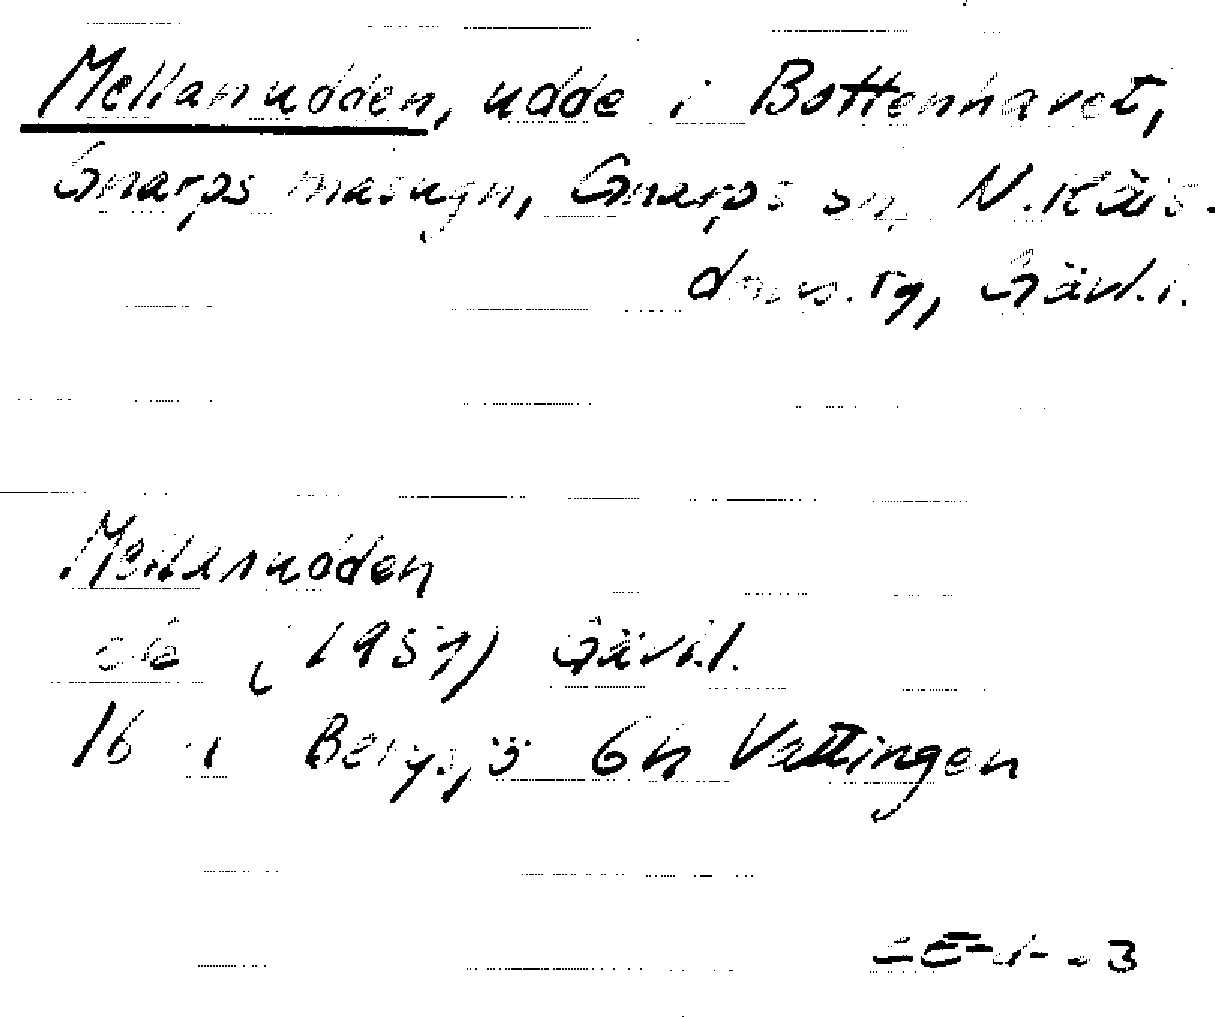 Mellanudden, udde i Bottenhavet,
Gnarps masugn, Gnarps sn, N. Häls.
doms.rg, Gävl.l.
Mellanudden
ek (1957) Gävl.l.
16 Bergsjö 6h Vattingen